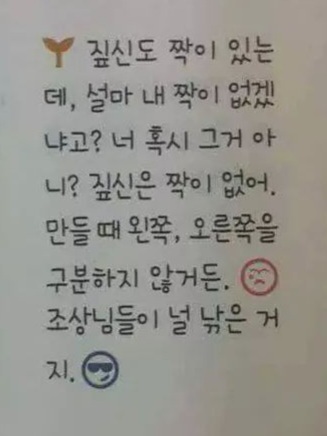 짚신도 짝이 있는
데, 설마 내 짝이 없겠
냐고? 너 혹시 그거 아
니? 짚신은 짝이 없어.
만들 때 왼쪽, 오른쪽을
구분하지 않거든.
조상님들이 널 낚은 거
지.